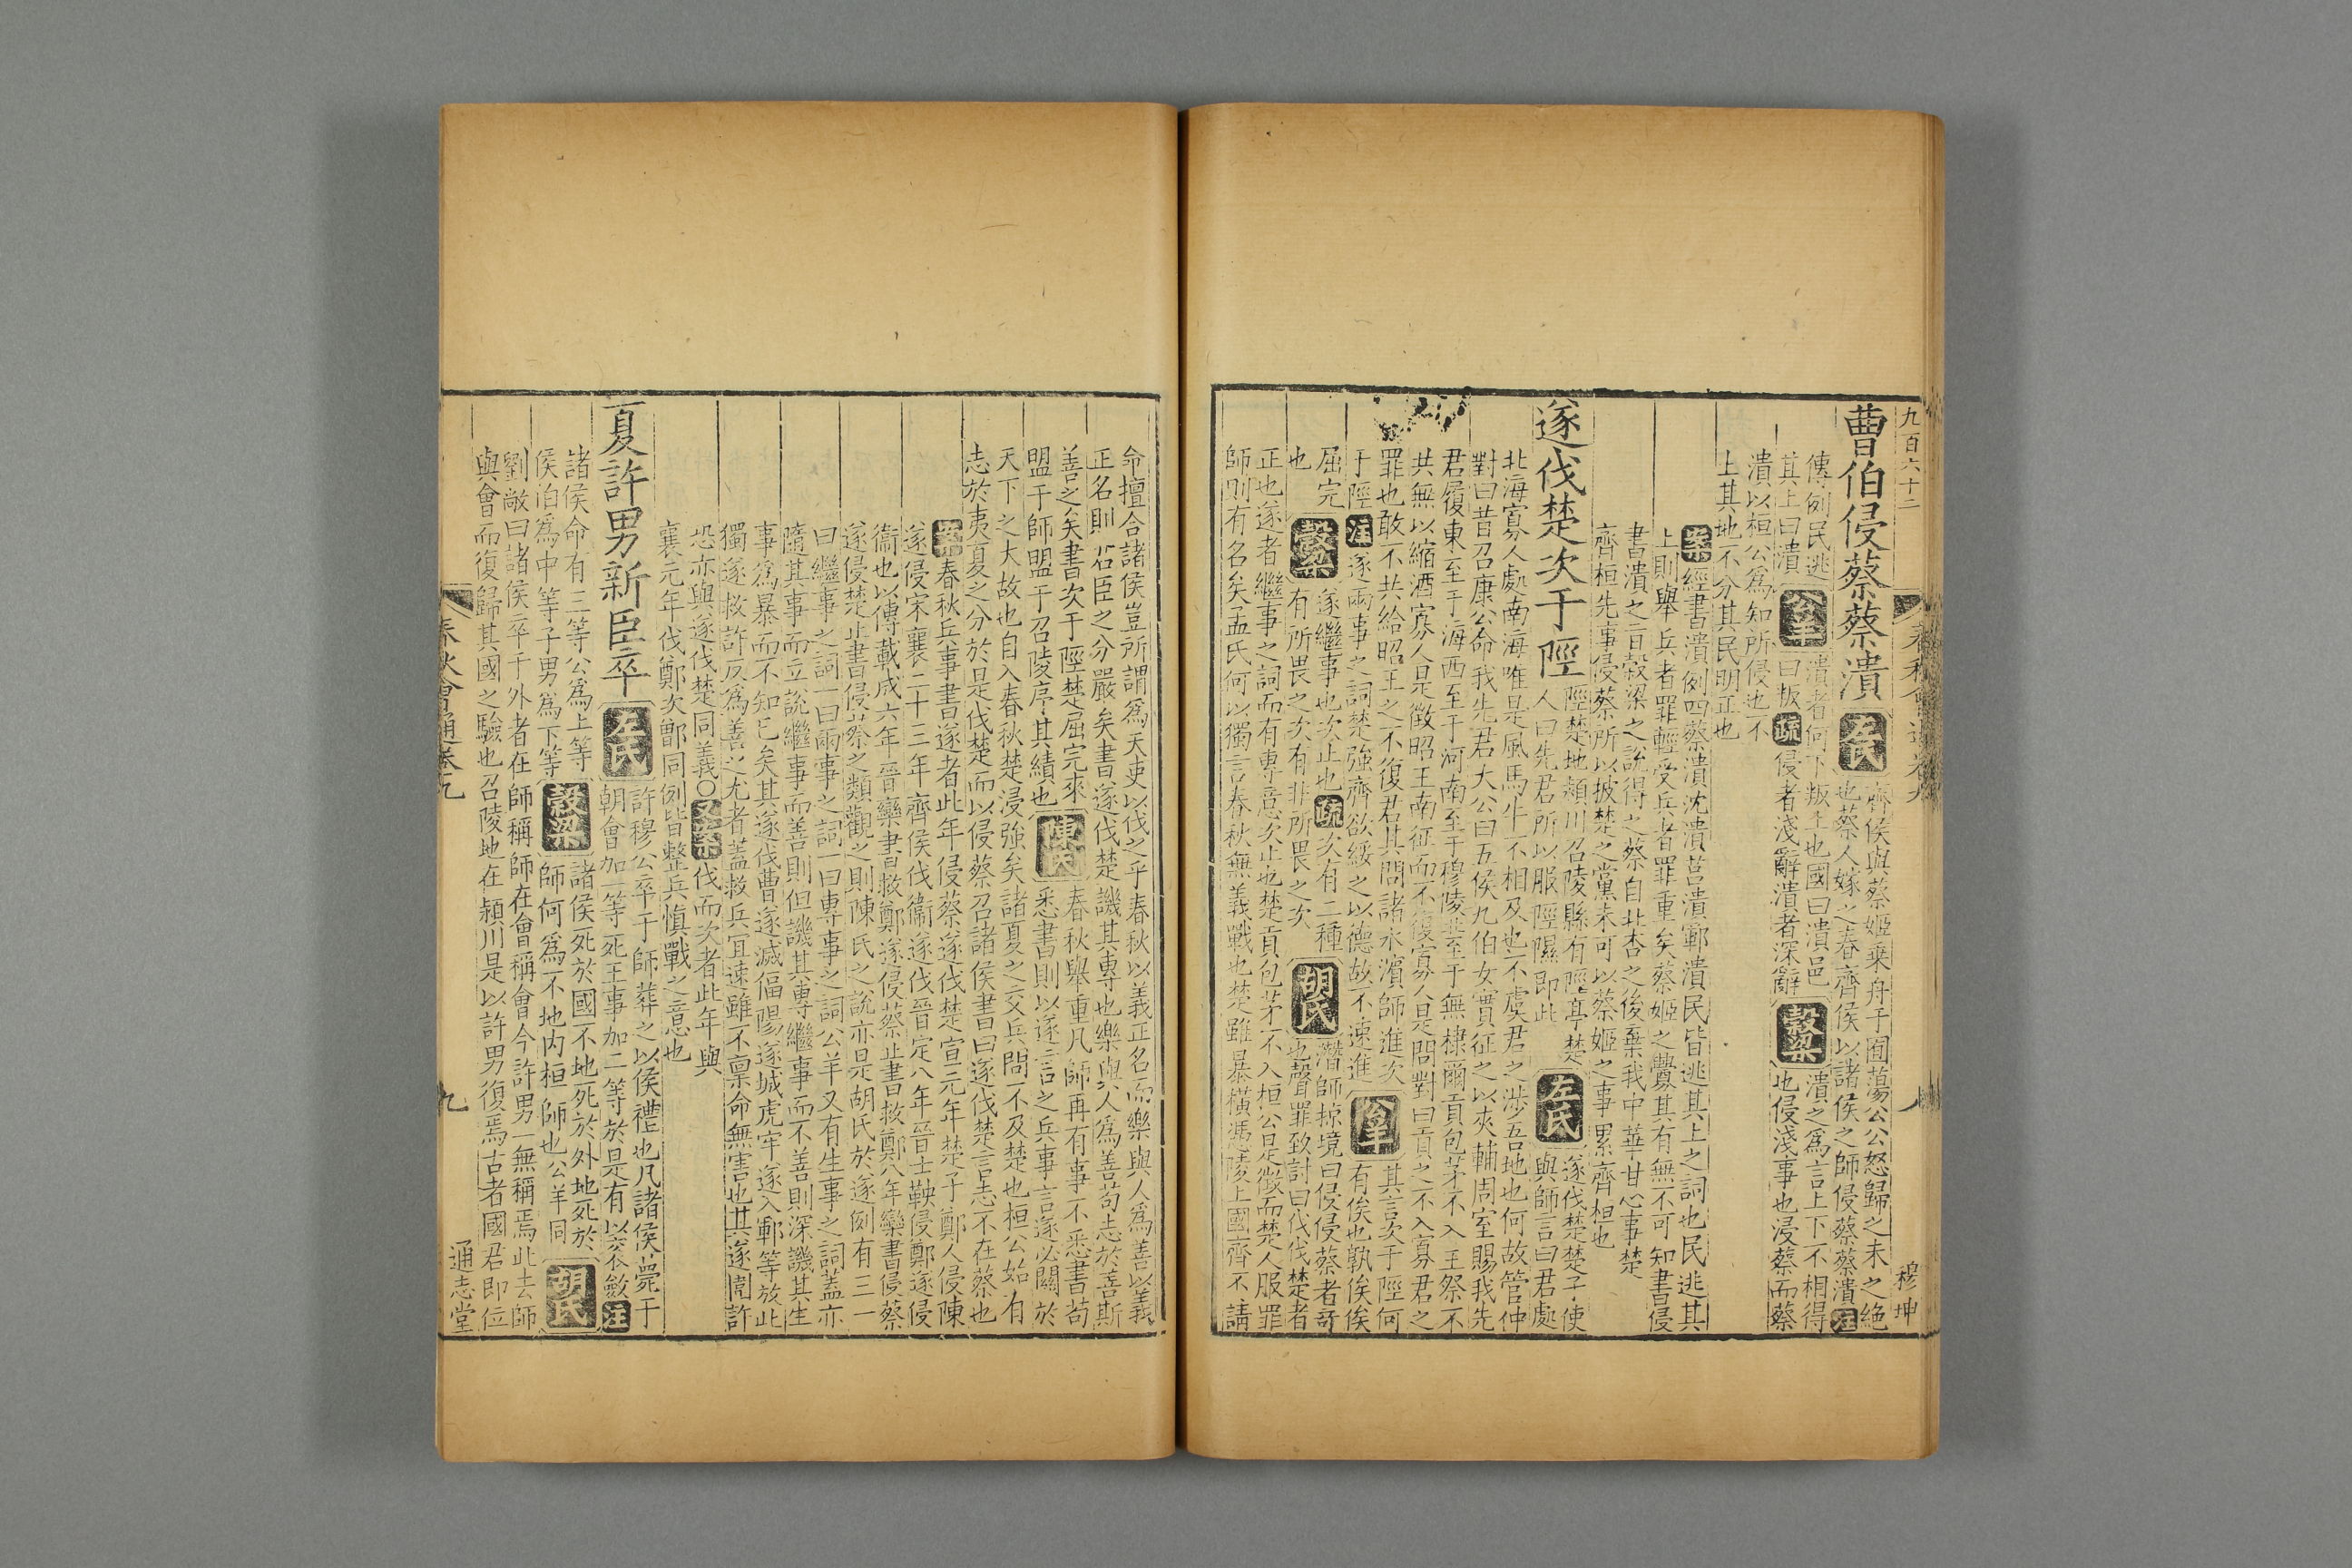 九百六十二
曹伯侵蔡蔡潰
左氏
齊侯與蔡姬乗舟于囿蕩公公怒歸之未之絶
也蔡人嫁之春齊侯以諸侯之師侵蔡蔡潰注
傳例民逃
其上曰潰
公羊
潰者何下叛上也國曰潰邑
曰叛疏侵者淺辭潰者深辭
穀梁
潰之爲言上下不相得
也侵淺事也浸蔡而蔡
潰以桓公爲知所侵也不
土其地不分其民明正也
案經書潰例四蔡潰沈潰莒潰鄆潰民皆逃其上之詞也民逃其
上則舉兵者罪輕受兵者罪重矣蔡姬之釁其有無不可知書侵
書潰之旨穀梁之說得之蔡自北杏之後棄我中華甘心事楚
齊桓先事侵蔡所以披楚之黨未可以蔡姬之事累齊桓也
遂伐楚次于陘
陘楚地潁川召陵縣有陘亭楚
人曰先君所以服陘隰即此
左氏
遂伐楚楚子使
與師言曰君處
北海寡人處南海唯是風馬牛不相及也不虞君之涉吾地也何故管仲
對曰昔召康公命我先君大公曰五侯九伯女實征之以夾輔周室賜我先
君履東至于海西至于河南至于穆陵北至于無棣爾貢包茅不入王祭不
共無以縮酒寡人是徵昭王南征而不復寡人是問對曰貢之不入寡君之
罪也敢不共給昭王之不復君其問諸水濱師進次
于陘注遂兩事之詞楚強齊欲綏之以德故不速進
公羊
其言次于陘何
有俟也孰俟俟
屈完
也
穀梁
遂繼事也次止也疏次有二種
有所畏之次有非所畏之次
胡氏
潛師掠境曰侵侵蔡者奇
也聲罪致討曰伐伐楚者
正也遂者繼事之詞而有專意次止也楚貢包茅不入桓公是徵而楚人服罪
師則有名矣孟氏何以獨言春秋無義戰也楚雖暴橫馮陵上國齊不請
春秋會通卷九
穆坤
命擅合諸侯豈所謂爲天吏以伐之乎春秋以義正名而樂與人爲善以義
正名則君臣之分嚴矣書遂伐楚譏其專也樂與人爲善苟志於善斯
善之矣書次于陘楚屈完來
盟于師盟于召陵序其績也
陳氏
春秋舉重凡師再有事不悉書苟
悉書則以遂言之兵事言遂必關於
天下之大故也自入春秋楚浸強矣諸夏之交兵問不及楚也桓公始有
志於夷夏之分於是伐楚而以侵蔡召諸侯書曰遂伐楚言志不在蔡也
案春秋兵事書遂者此年侵蔡遂伐楚宣元年楚子鄭人侵陳
遂侵宋襄二十三年齊侯伐衞遂伐晉定八年晉士鞅侵鄭遂侵
衞也以傳載成六年晉欒書救鄭遂侵蔡止書救鄭八年欒書侵蔡
遂侵楚止書侵蔡之類觀之則陳氏之說亦是胡氏於遂例有三一
曰繼事之詞一曰兩事之詞一曰專事之詞公羊又有生事之詞蓋亦
隨其事而立說繼事而善則但譏其專繼事而不善則深譏其生
事爲暴而不知已矣其遂伐曹遂滅偪陽遂城虎牢遂入鄆等放此
獨遂救許反爲善之尤者蓋救兵宜速雖不禀命無害也其遂圍許
恐亦與遂伐楚同義○又案伐而次者此年與
襄元年伐鄭次鄫同例皆整兵慎戰之意也
夏許男新臣卒
左氏
許穆公卒于師葬之以侯禮也凡諸侯薨于
朝會加一等死王事加二等於是有以衮斂注
諸侯命有三等公爲上等
侯伯爲中等子男爲下等
穀梁
諸侯死於國不地死於外地死於
師何爲不地内桓師也公羊同
胡氏
劉敞曰諸侯卒于外者在師稱師在會稱會今許男一無稱焉此去師
與會而復歸其國之驗也召陵地在潁川是以許男復焉古者國君即位
春秋會通卷九
九
通志堂